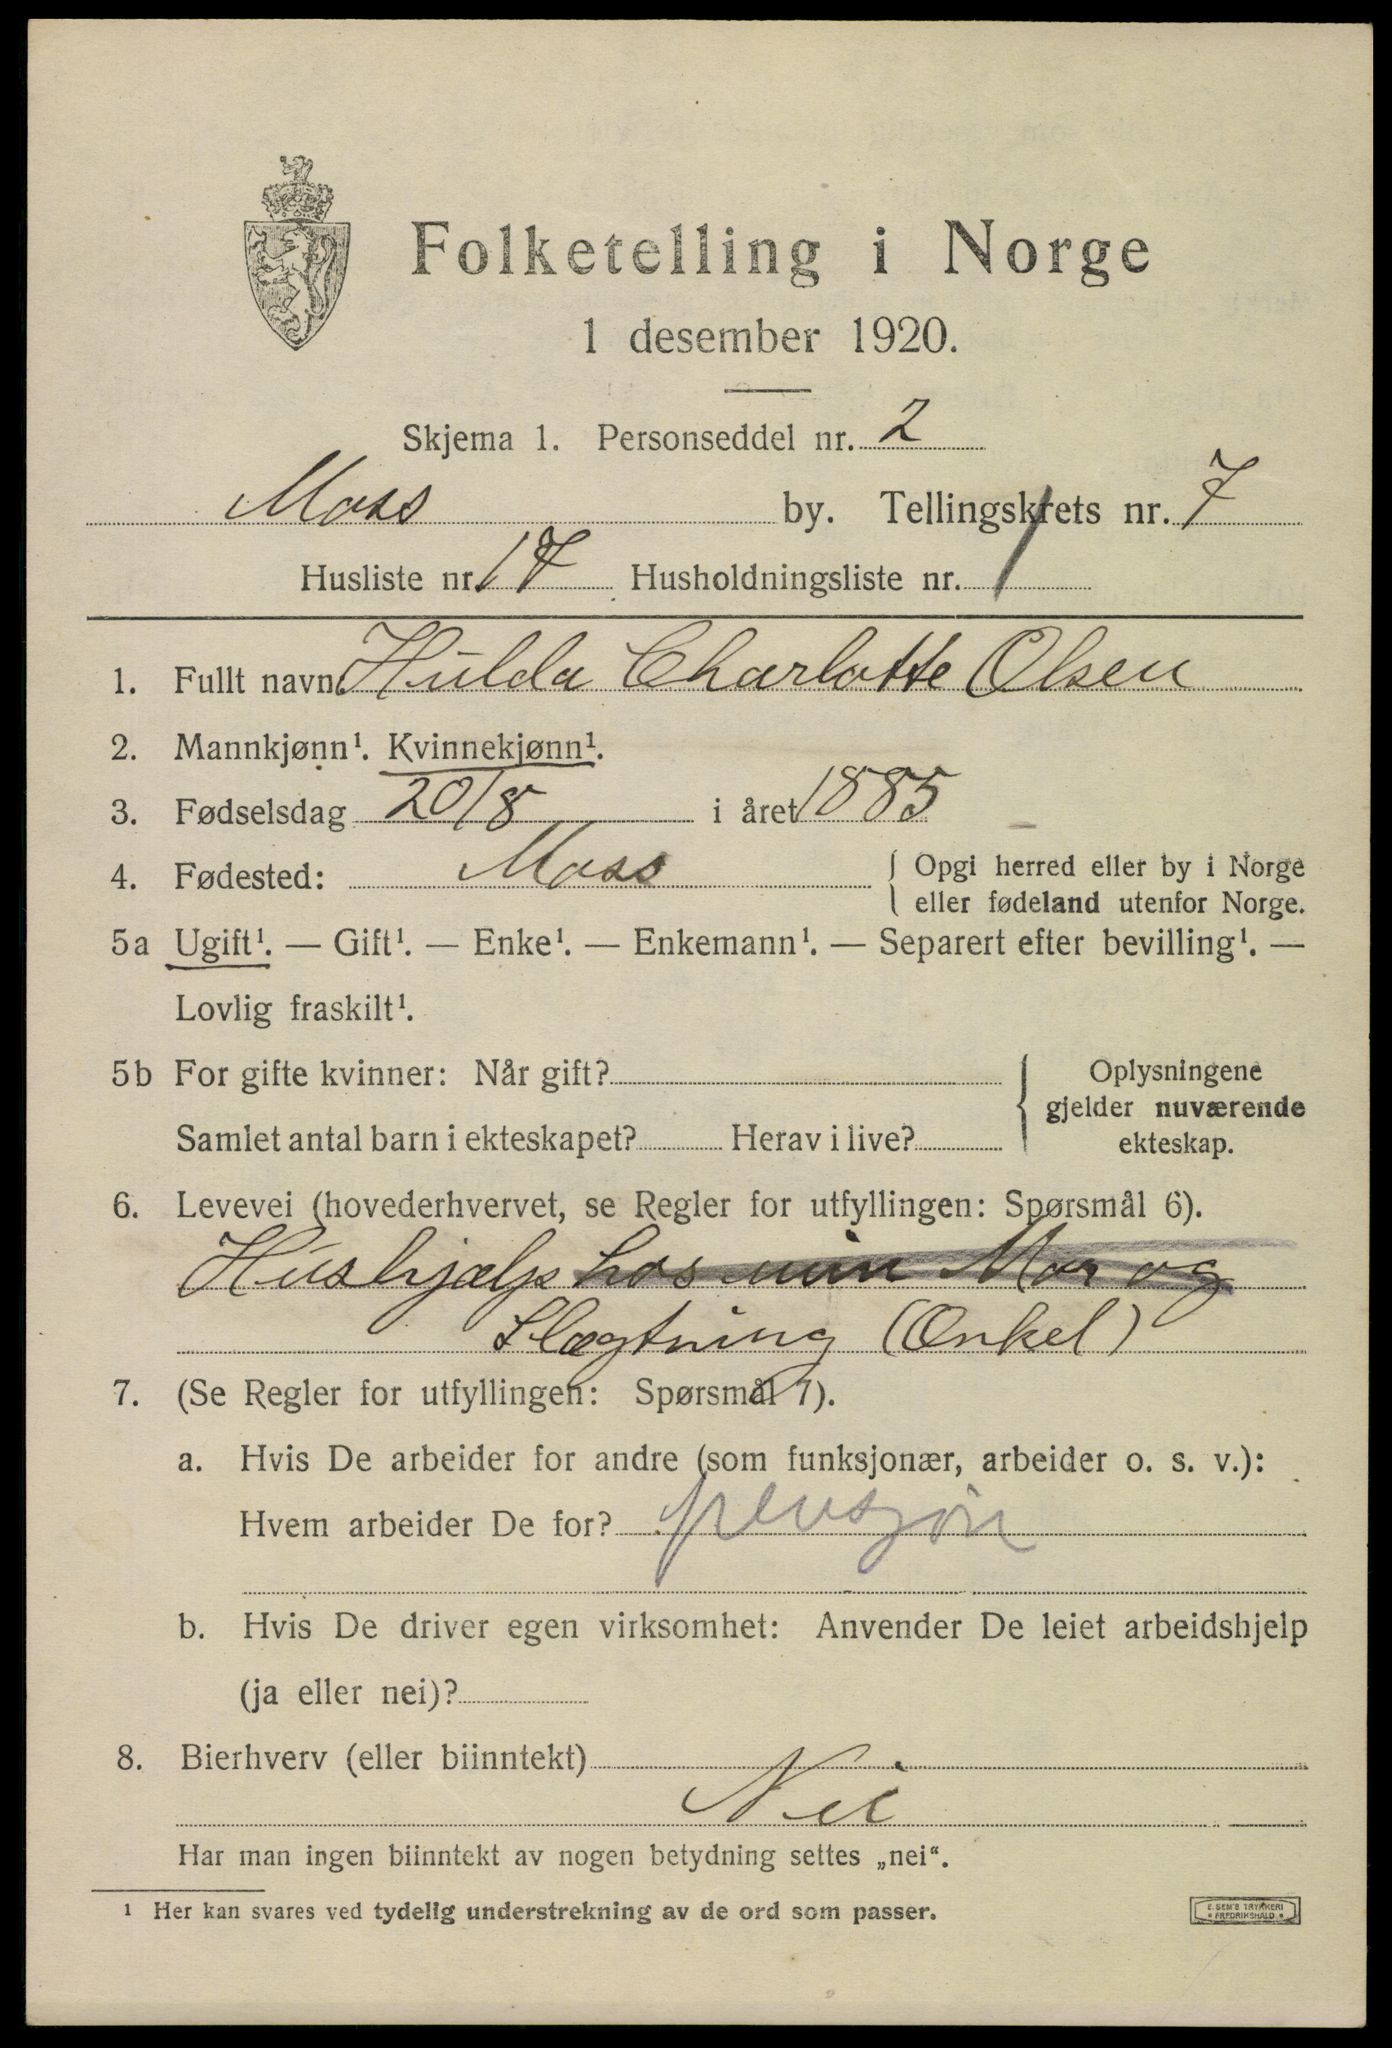 Folketelling i Norge
1 desember 1920.
Skjema 1. Personseddel nr. 2
Moss by. Tellingskrets nr. 7
Husliste nr. 17 Husholdningsliste nr. 1
1. Fullt navn Hulda Charlotte Olsen
2. Mannkjønn¹. Kvinnekjønn¹.
3. Fødselsdag 20/8 i året 1885
4. Fødested: Moss { Opgi herred eller by i Norge
eller fødeland utenfor Norge.
5a Ugift¹. — Gift¹. — Enke¹. — Enkemann¹. — Separert efter bevilling¹. —
Lovlig fraskilt¹.
5b For gifte kvinner: Når gift?
Samlet antal barn i ekteskapet? Herav i live?
{ Oplysningene
gjelder nuværende
ekteskap.
6. Levevei (hovederhvervet, se Regler for utfyllingen: Spørsmål 6).
Hushjælp hos min Mor og
Slægtning (Onkel)
7. (Se Regler for utfyllingen: Spørsmål 7).
a. Hvis De arbeider for andre (som funksjonær, arbeider o. s. v.):
Hvem arbeider De for? pensjon
b. Hvis De driver egen virksomhet: Anvender De leiet arbeidshjelp
(ja eller nei)?
8. Bierhverv (eller biinntekt)
Nei
Har man ingen biinntekt av nogen betydning settes „nei“.
¹ Her kan svares ved tydelig understrekning av de ord som passer.
E. SEM'S TRYKKERI
FREDRIKSHALD